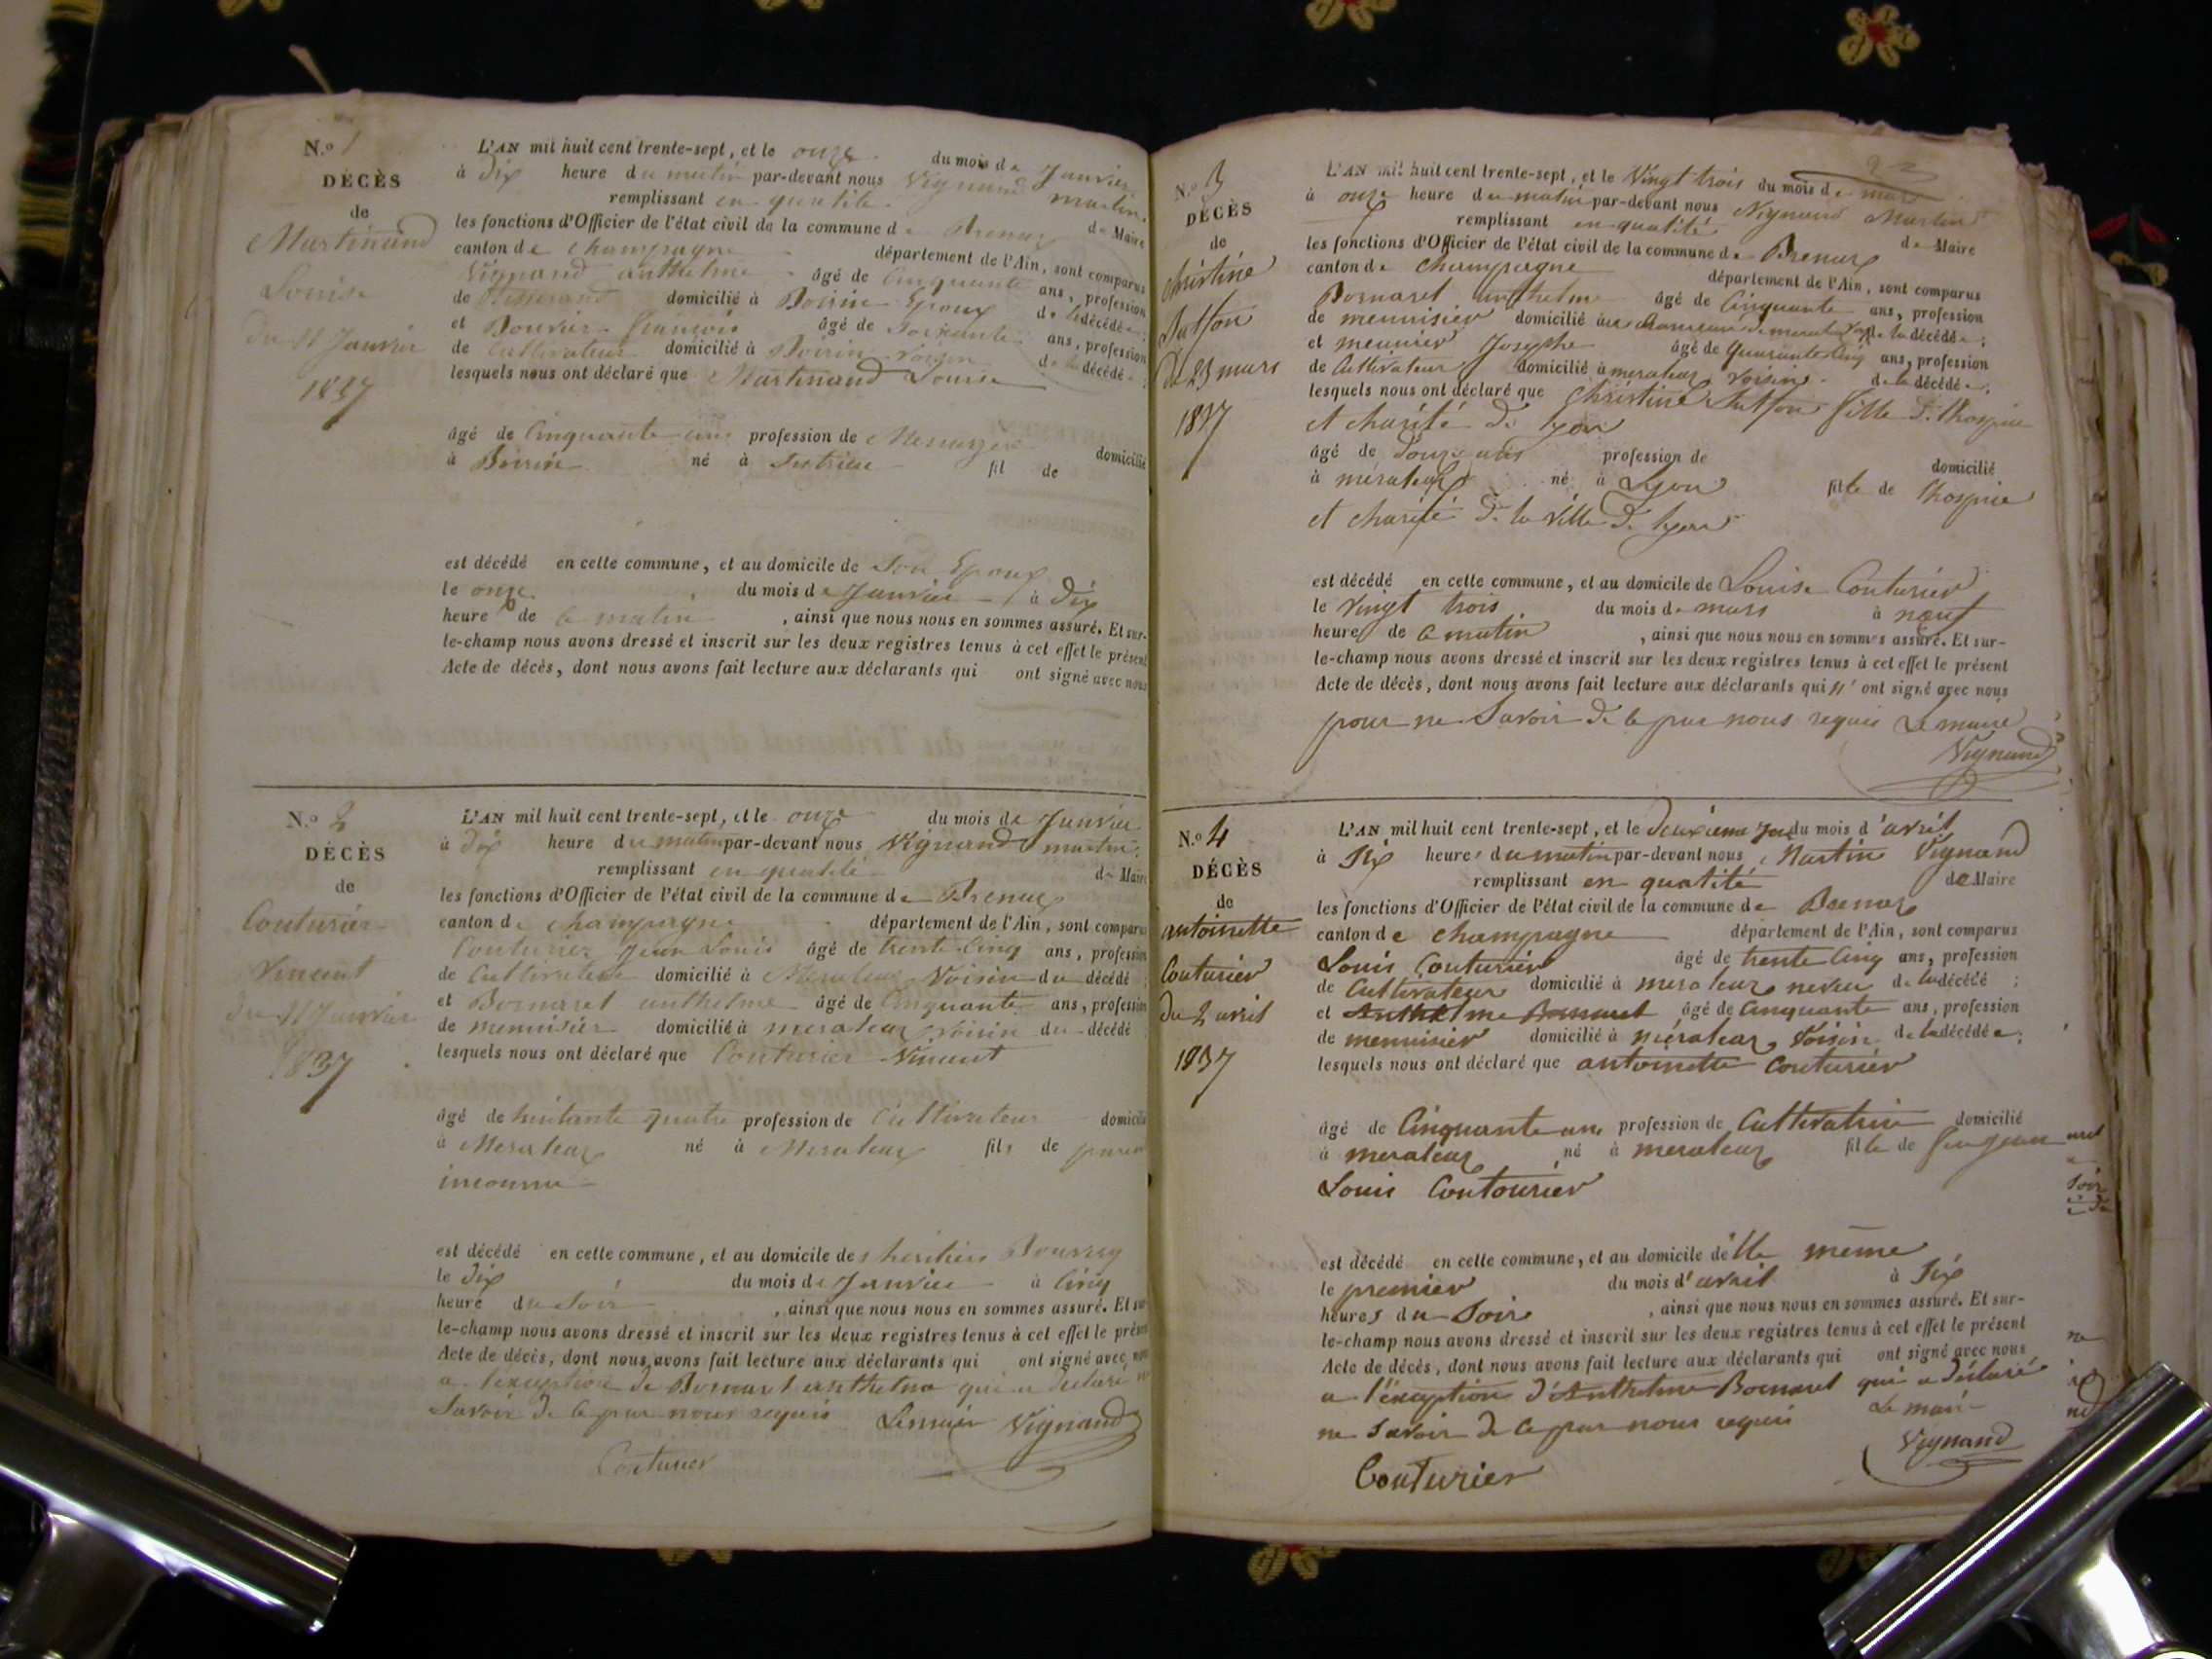 N.º 1
DÉCÈS
de
Martinand
Louise
du 11 Janvier
1837
L'AN mil huit cent trente-sept, et le onze du mois de Janvier
à dix heure du matin par-devant nous Vignand martin
remplissant en qualité de Maire
les fonctions d'Officier de l'état civil de la commune de Brenaz
canton de champagne département de l'Ain, sont comparus
Vignand anthelme âgé de Cinquante ans, profession
de domicilié à Boirin Epoux de la décédée
et Bouvier françois âgé de Soixante ans, profession
de Cultivateur domicilié à Boirin Voisin de la décédée
lesquels nous ont déclaré que Martinand Louise
âgé de Cinquante ans profession de Menagère domicilié
à Boirin né à Sutrieu fil de
est décédé en cette commune, et au domicile de Son Epoux
le onze du mois de Janvier à Dix
heure de ce matin, ainsi que nous nous en sommes assuré. Et sur-
le-champ nous avons dressé et inscrit sur les deux registres tenus à cet effet le présent
Acte de décès, dont nous avons fait lecture aux déclarants qui ont signé avec nous
N.º 2
DÉCÈS
de
Couturier
Vincent
du 11 Janvier
1837
L'AN mil huit cent trente-sept, et le onze du mois de Janvier
à dix heure du matin par-devant nous Vignand martin
remplissant en qualité de Maire
les fonctions d'Officier de l'état civil de la commune de Brenaz
canton de champagne département de l'Ain, sont comparus
Couturier Jean Louis âgé de trente Cinq ans, profession
de Cultivateur domicilié à Meraleaz Voisin du décédé
et Bornaret anthelme âgé de Cinquante ans, profession
de menuisier domicilié à meraleaz voisin du décédé
lesquels nous ont déclaré que Couturier Vincent
âgé de huitante quatre profession de Cultivateur domicilié
à Meraleaz né à Meraleaz fils de
inconnu
est décédé en cette commune, et au domicile des heritiers
le Dix du mois de Janvier à Cinq
heure du Soir, ainsi que nous nous en sommes assuré. Et sur-
le-champ nous avons dressé et inscrit sur les deux registres tenus à cet effet le présent
Acte de décès, dont nous avons fait lecture aux déclarants qui ont signé avec nous
a l'exception de Bornaret anthelme qui a declaré ne
Savoir de ce par nous requis Le maire Vignand
Couturier
N.º 3
DÉCÈS
de
christine
Sutfon
Du 23 mars
1837
L'AN mil huit cent trente-sept, et le Vingt trois du mois de mars
à onze heure du matin par-devant nous Vignand Martin
remplissant en qualité de Maire
les fonctions d'Officier de l'état civil de la commune de Brenaz
canton de champagne département de l'Ain, sont comparus
Bornaret anthelme âgé de Cinquante ans, profession
de menuisier domicilié de la décédée;
et meunier Josephe âgé de Quarante Cinq ans, profession
de Cultivateur domicilié à meraleaz voisin de la décédée;
lesquels nous ont déclaré que Christine Sutfon fille de l'hospice
et charité de lyon
âgé de Douze ans profession de domicilié
à meraleaz né à Lyon fille de l'hospice
et charité de la Ville de lyon
est décédé en cette commune, et au domicile de Louise Couturier
le Vingt trois du mois de mars à neuf
heure de ce matin, ainsi que nous nous en sommes assuré. Et sur-
le-champ nous avons dressé et inscrit sur les deux registres tenus à cet effet le présent
Acte de décès, dont nous avons fait lecture aux déclarants qui n'ont signé avec nous
pour ne Savoir de ce par nous requis Le maire
Vignand
N.º 4
DÉCÈS
de
antoinette
Couturier
Du 2 avril
1837
L'AN mil huit cent trente-sept, et le deuxieme jour du mois d'avril
à Six heures du matin par-devant nous Martin Vignand
remplissant en qualité de Maire
les fonctions d'Officier de l'état civil de la commune de Brenaz
canton de champagne département de l'Ain, sont comparus
Louis Couturier âgé de trente Cinq ans, profession
de Cultivateur domicilié à meraleaz neveu de la décédé;
et Anthelme Bornaret âgé de Cinquante ans, profession
de menuisier domicilié à méraleaz Voisin de la décédée;
lesquels nous ont déclaré que antoinette Couturier
âgé de Cinquante ans profession de Cultivatrice domicilié
à meraleaz né à meraleaz fille de feu jean
Louis Coutourier
est décédé en cette commune, et au domicile d'elle même
le premier du mois d'avril à Six
heures du Soir, ainsi que nous nous en sommes assuré. Et sur-
le-champ nous avons dressé et inscrit sur les deux registres tenus à cet effet le présent
Acte de décès, dont nous avons fait lecture aux déclarants qui ont signé avec nous
a l'éxception d'Anthelme Bornaret qui a déclaré
ne Savoir de ce par nous requis Le maire
Vignand
Couturier